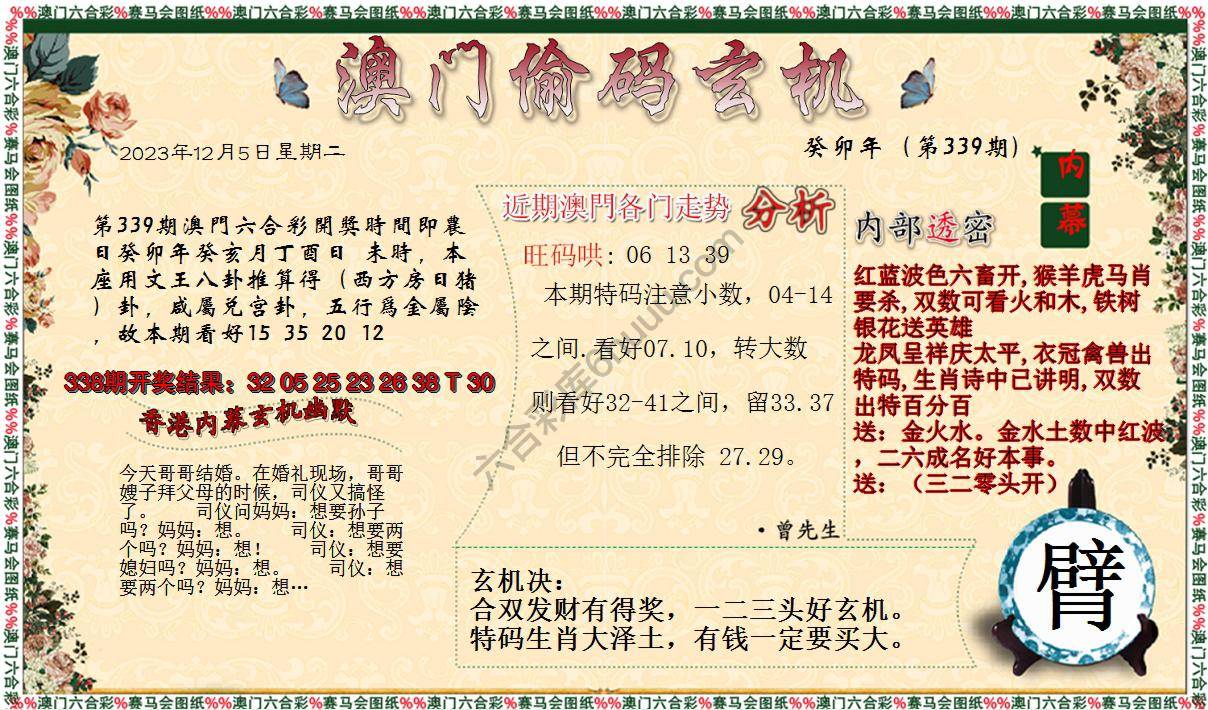 %%澳门六合彩%赛马会图纸%%澳门六合彩%赛马会图纸%%澳门六合彩%赛马会图纸%%澳门六合彩%赛马会图纸%%澳门六合彩%赛马会图纸%%澳门六合彩%赛马会图纸%%
澳门偷码玄机
2023年12月5日星期二
癸卯年（第339期）
内幕
第339期澳門六合彩開獎時間即農
日癸卯年癸亥月丁酉日 未時，本
座用文王八卦推算得（西方房日猪
）卦，咸屬兑宫卦，五行爲金屬陰
，故本期看好15 35 20 12
338期开奖结果：32 05 25 23 26 38 T 30
香港内幕玄机幽默
今天哥哥结婚。在婚礼现场，哥哥
嫂子拜父母的时候，司仪又搞怪
了。 司仪问妈妈：想要孙子
吗？妈妈：想。 司仪：想要两
个吗？妈妈：想！ 司仪：想要
媳妇吗？妈妈：想。 司仪：想
要两个吗？妈妈：想…
近期澳門各门走势 分析
旺码哄: 06 13 39
本期特码注意小数，04-14
之间.看好07.10，转大数
则看好32-41之间，留33.37
但不完全排除 27.29。
·曾先生
内部透密
红蓝波色六畜开,猴羊虎马肖
要杀,双数可看火和木,铁树
银花送英雄
龙凤呈祥庆太平,衣冠禽兽出
特码,生肖诗中已讲明,双数
出特百分百
送：金火水。金水土数中红波
，二六成名好本事。
送：（三二零头开）
玄机决：
合双发财有得奖，一二三头好玄机。
特码生肖大泽土，有钱一定要买大。
臂
%%澳门六合彩%赛马会图纸%%澳门六合彩%赛马会图纸%%澳门六合彩%赛马会图纸%%澳门六合彩%赛马会图纸%%澳门六合彩%赛马会图纸%%澳门六合彩%赛马会图纸%%